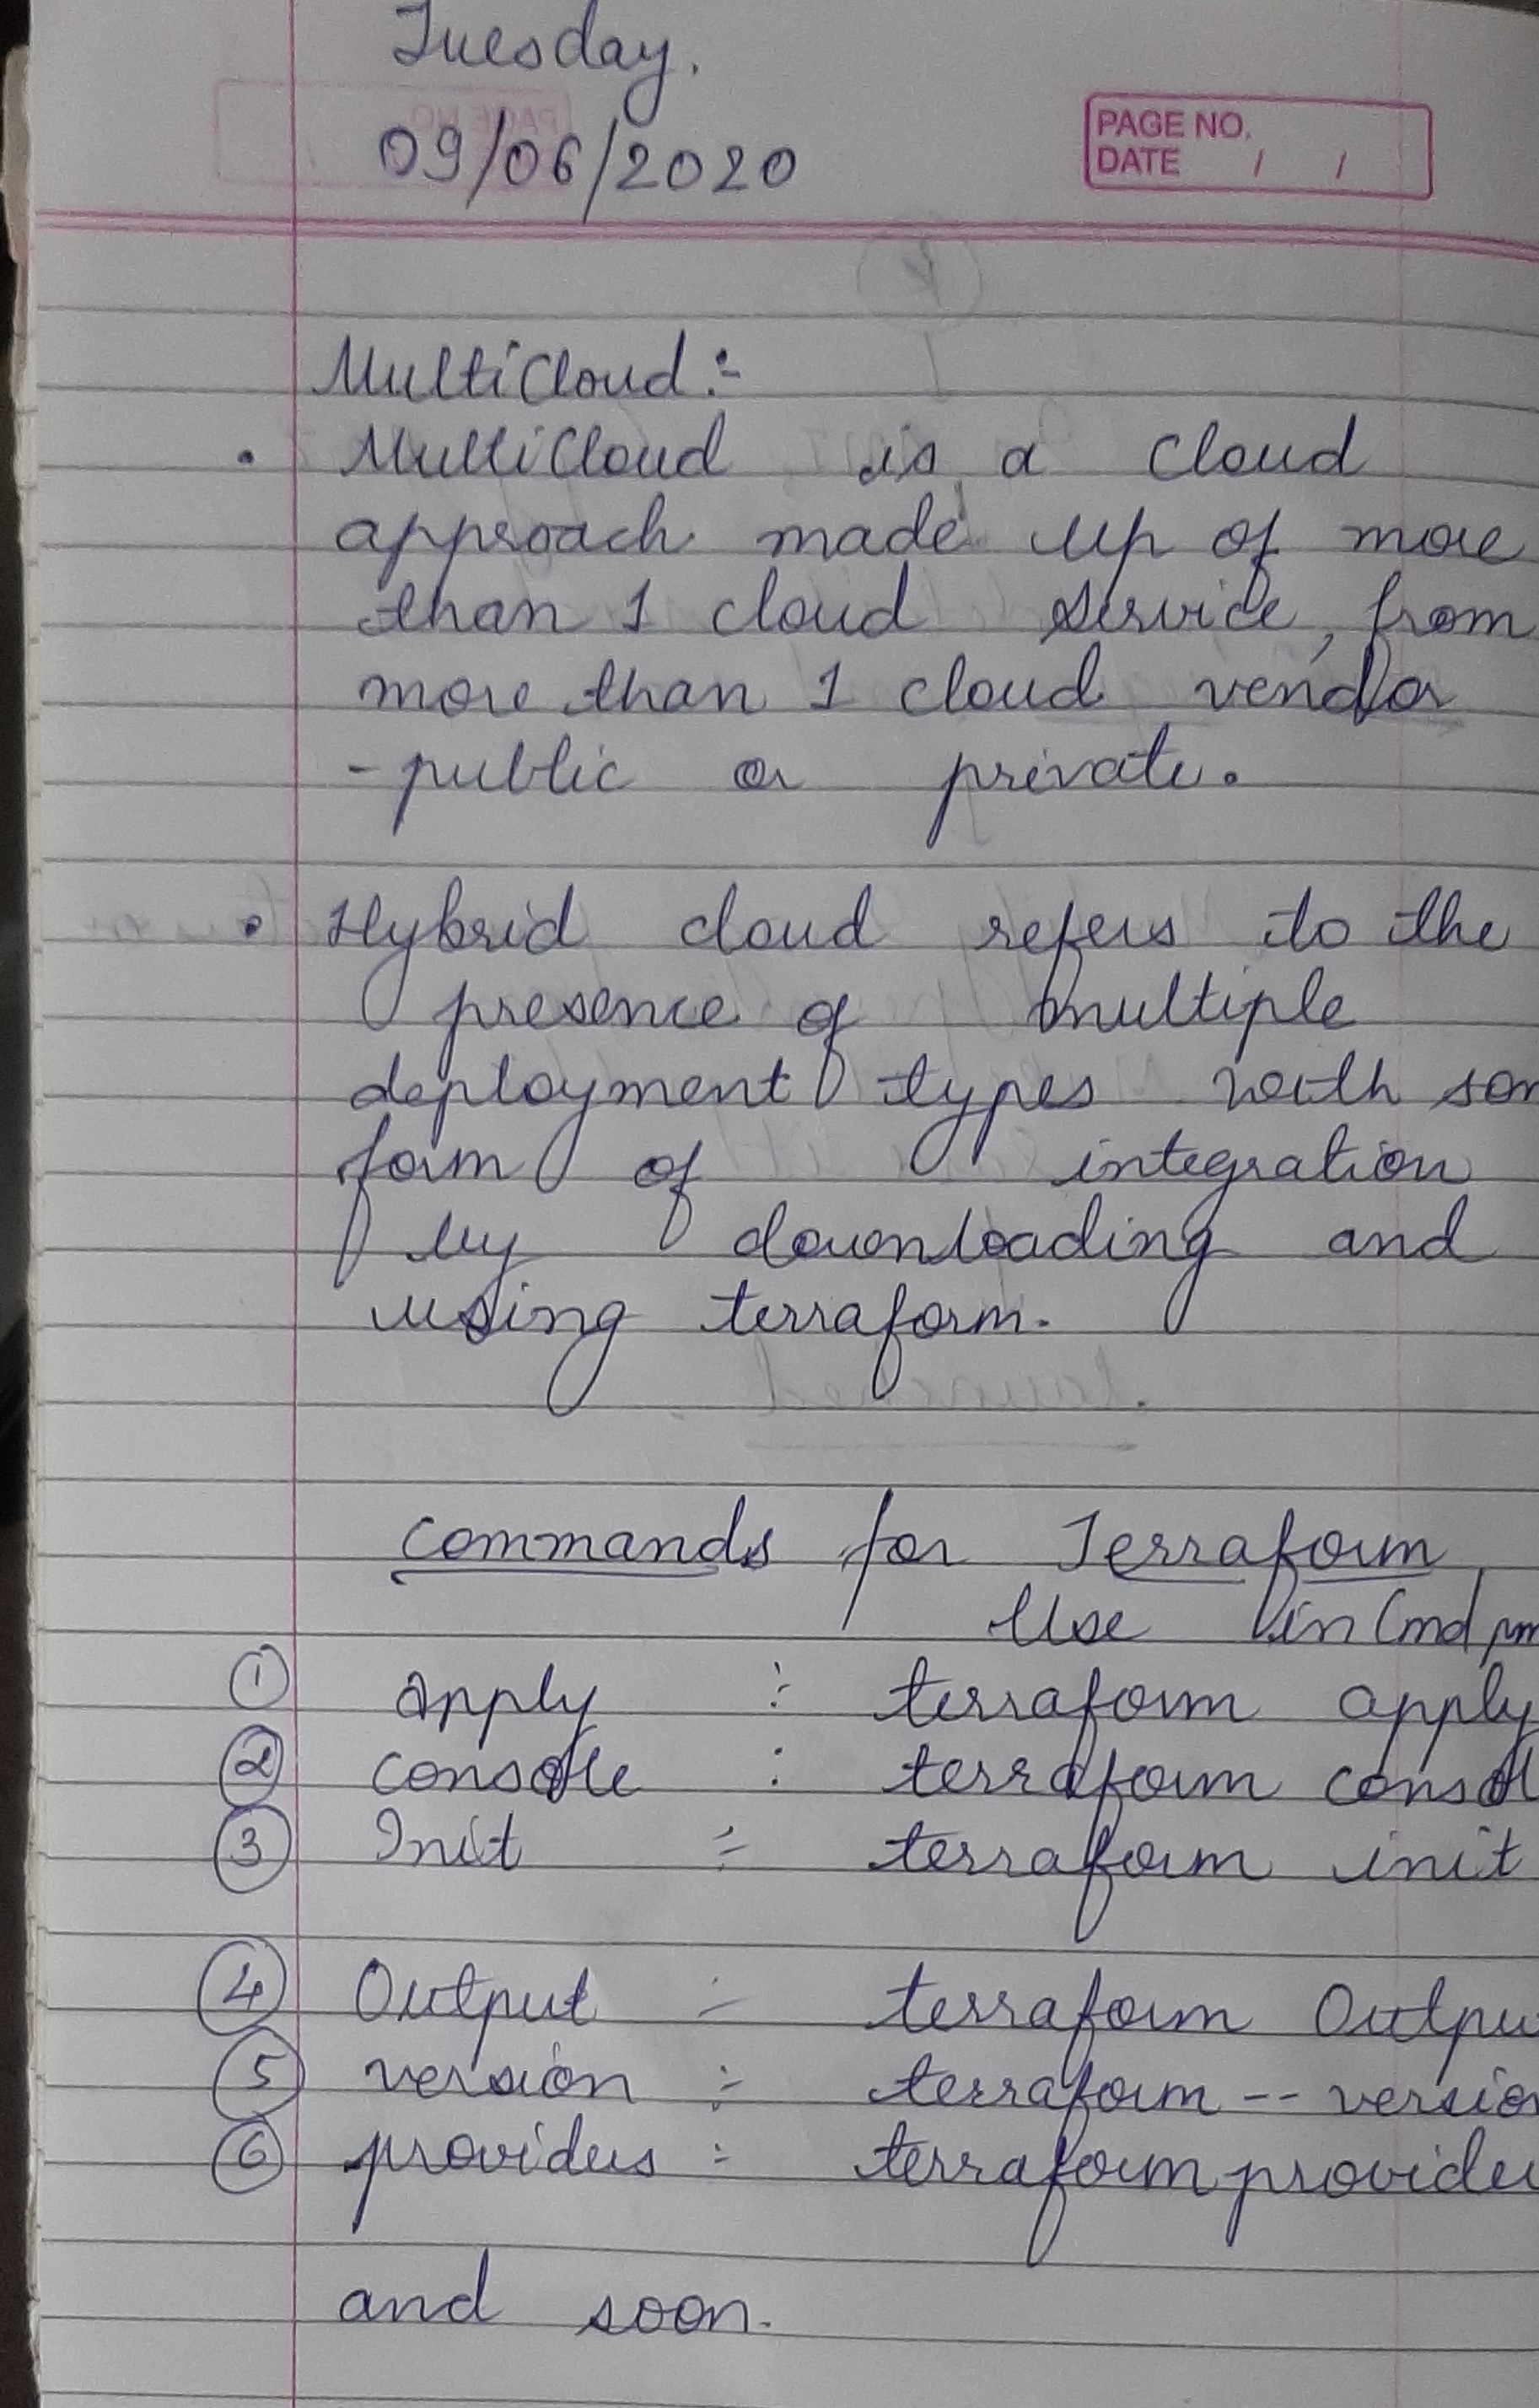 Tuesday.
09/06/2020
PAGE NO.
DATE / /
MultiCloud :-
• MultiCloud is a cloud
approach made up of more
than 1 cloud service, from
more than 1 cloud vendor
- public or private.
• Hybrid cloud refers to the
presence of multiple
deployment types with som
form of integration
by downloading and
using terraform.
Commands for Terraform
Use in Cmd
① apply : terraform apply
② console : terraform consol
③ Init :- terraform init
④ Output :- terraform Outpu
⑤ version :- terraform -- version
⑥ providers :- terraform provider
and soon.